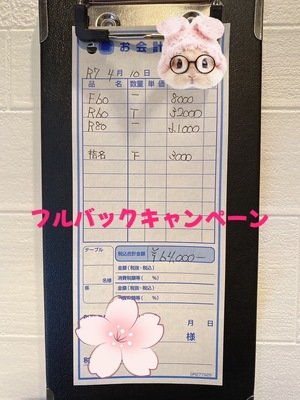 お会計
R7 4月10日
品 名 数量 単価
F60 一 8000
R60 T 32000
R80 一 21000
指名 F 3000
フルバックキャンペーン
テーブル 税込合計金額 ¥64,000-
金額(税抜・税込)
名様 消費税額等( %)
係 金額(税抜・税込)
消費税額等( %)
月 日
様
税